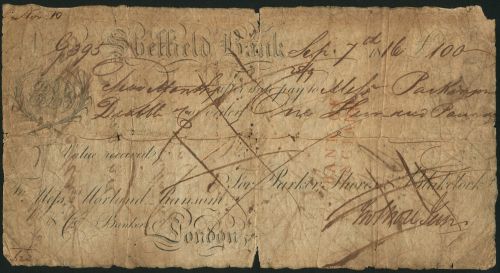 Nov. 10
G,395 Sheffield Bank Sep. 7th 1816 £100
Two Months after date pay to Messrs Parkinson
or order One Hundred Pounds
Value received
For Parker, Shore & Blakelock
To Messrs Morland, Ransom
& Co Bankers
London